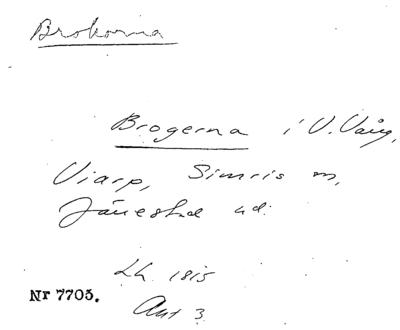 Brokorna
Brogerna i V. Vång,
Viarp, Simris m,
Järrestad
Lh. 1815
Nr 7705.
Akt 3